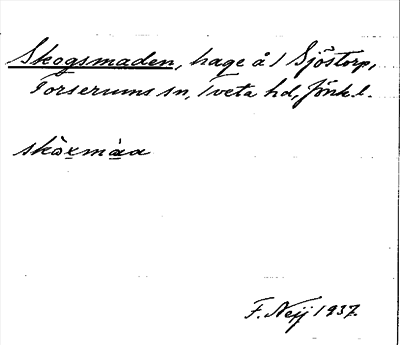 Skogsmaden, hage å 1 Sjöstorp,
Forserums sn, Tveta hd, Jönk. l.
skòxmàa
F. Neij 1937.